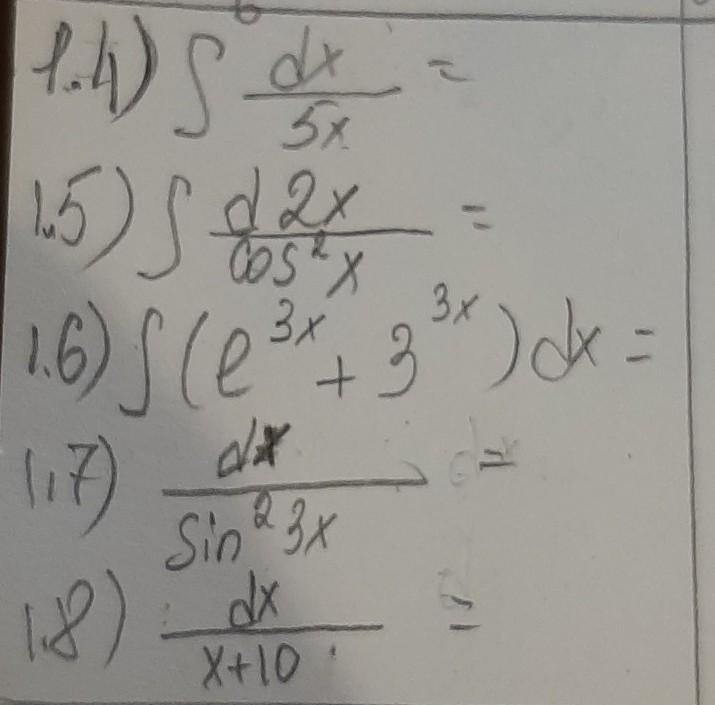 1.4) ∫ dx/5x =
1.5) ∫ d2x/cos²x =
1.6) ∫(e^3x + 3^3x)dx =
1.7) dx/sin²3x =
1.8) dx/x+10 =